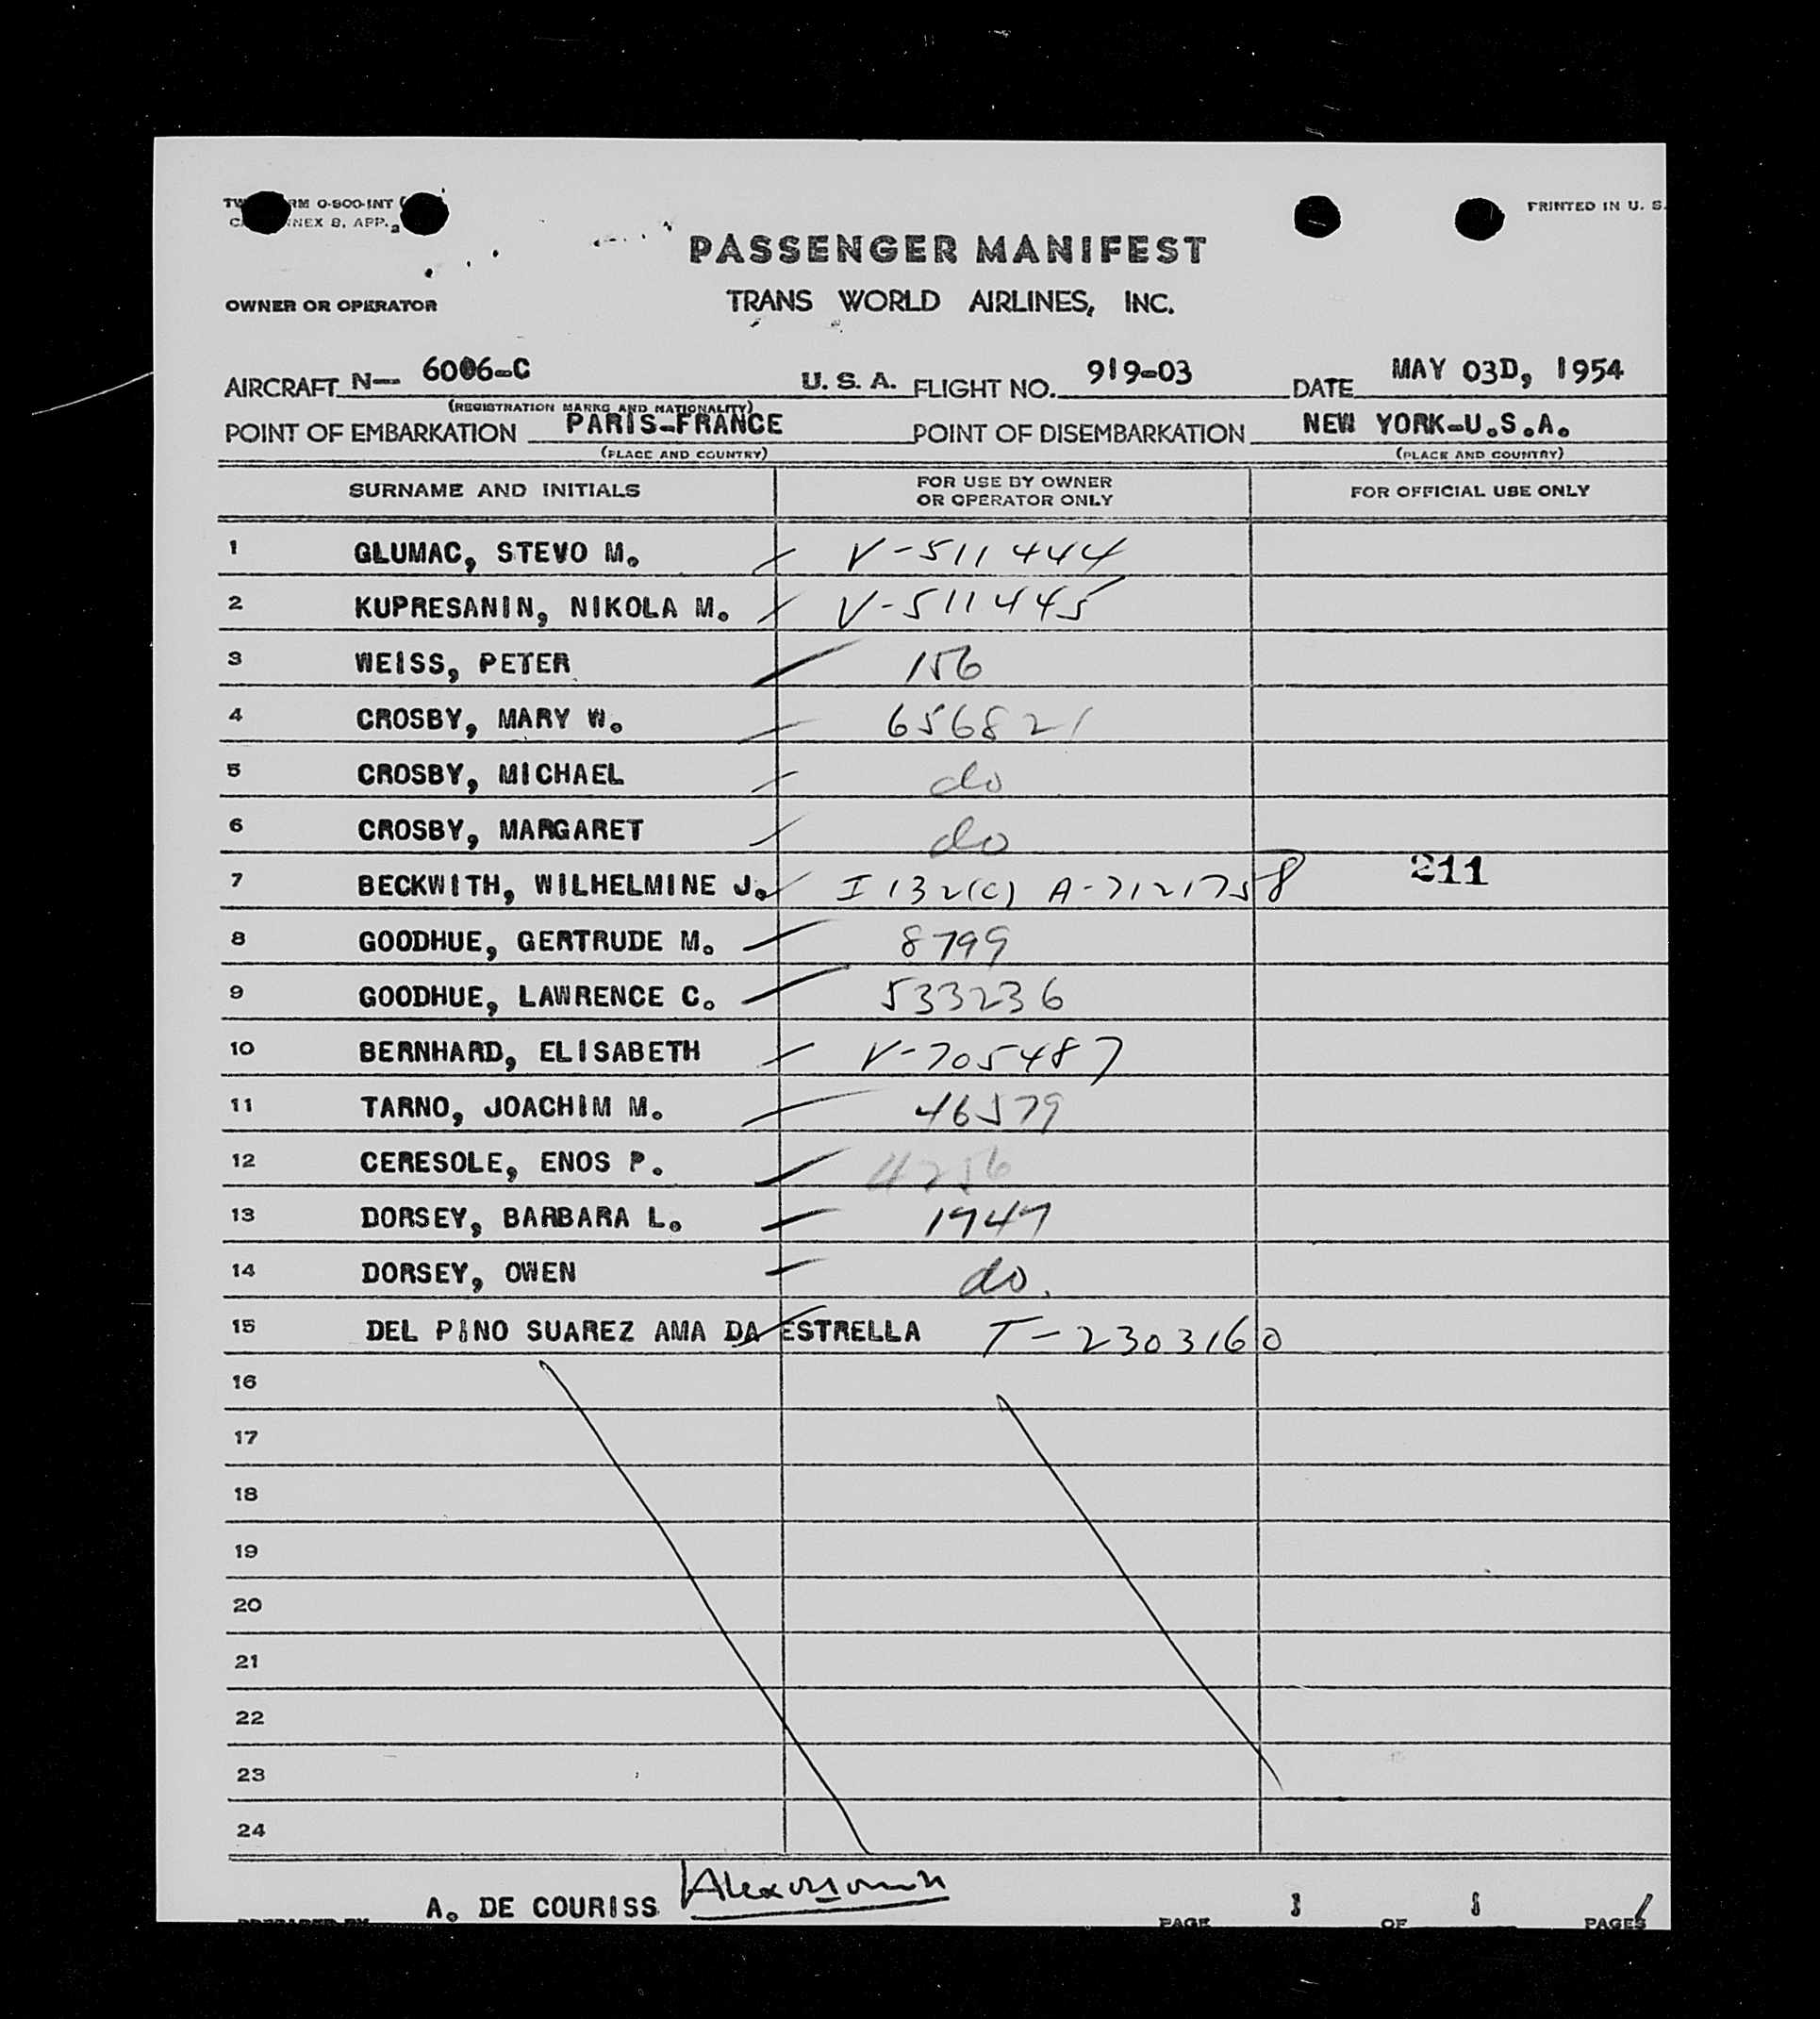 RM O-800-INT (
NEX 8, APP. 2
PRINTED IN U. S.
PASSENGER MANIFEST
OWNER OR OPERATOR TRANS WORLD AIRLINES, INC.
AIRCRAFT N— 6006-C U. S. A. FLIGHT NO. 919-03 DATE MAY 03D, 1954
(REGISTRATION MARKS AND NATIONALITY)
POINT OF EMBARKATION PARIS-FRANCE POINT OF DISEMBARKATION NEW YORK-U.S.A.
(PLACE AND COUNTRY) (PLACE AND COUNTRY)
SURNAME AND INITIALS FOR USE BY OWNER OR OPERATOR ONLY FOR OFFICIAL USE ONLY
1 GLUMAC, STEVO M. V-511444
2 KUPRESANIN, NIKOLA M. V-511445
3 WEISS, PETER 156
4 CROSBY, MARY W. 656821
5 CROSBY, MICHAEL do
6 CROSBY, MARGARET do
7 BECKWITH, WILHELMINE J. I 132(c) A-7121758 211
8 GOODHUE, GERTRUDE M. 8799
9 GOODHUE, LAWRENCE C. 533236
10 BERNHARD, ELISABETH V-705487
11 TARNO, JOACHIM M. 46579
12 CERESOLE, ENOS P. 4256
13 DORSEY, BARBARA L. 1947
14 DORSEY, OWEN do.
15 DEL PINO SUAREZ AMA DA ESTRELLA T-2303160
16
17
18
19
20
21
22
23
24
A. DE COURISS
PREPARED BY PAGE 1 OF 1 PAGES